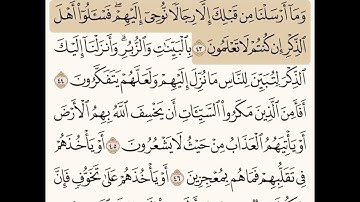 وَمَآ أَرۡسَلۡنَا مِن قَبۡلِكَ إِلَّا رِجَالٗا نُّوحِيٓ إِلَيۡهِمۡۖ فَسۡـَٔلُوٓاْ أَهۡلَ
ٱلذِّكۡرِ إِن كُنتُمۡ لَا تَعۡلَمُونَ ٤٣ بِٱلۡبَيِّنَٰتِ وَٱلزُّبُرِۗ وَأَنزَلۡنَآ إِلَيۡكَ
ٱلذِّكۡرَ لِتُبَيِّنَ لِلنَّاسِ مَا نُزِّلَ إِلَيۡهِمۡ وَلَعَلَّهُمۡ يَتَفَكَّرُونَ ٤٤
أَفَأَمِنَ ٱلَّذِينَ مَكَرُواْ ٱلسَّيِّـَٔاتِ أَن يَخۡسِفَ ٱللَّهُ بِهِمُ ٱلۡأَرۡضَ
أَوۡ يَأۡتِيَهُمُ ٱلۡعَذَابُ مِنۡ حَيۡثُ لَا يَشۡعُرُونَ ٤٥ أَوۡ يَأۡخُذَهُمۡ
فِي تَقَلُّبِهِمۡ فَمَا هُم بِمُعۡجِزِينَ ٤٦ أَوۡ يَأۡخُذَهُمۡ عَلَىٰ تَخَوُّفٖ فَإِنَّ